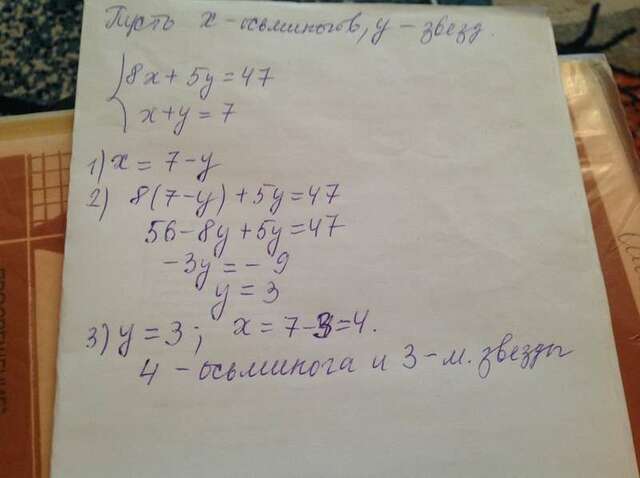 Пусть x - осьминогов, y - звезд.
8x + 5y = 47
x + y = 7
1) x = 7 - y
2) 8(7 - y) + 5y = 47
56 - 8y + 5y = 47
-3y = - 9
y = 3
3) y = 3; x = 7 - 3 = 4.
4 - осьминога и 3 - м. звезды